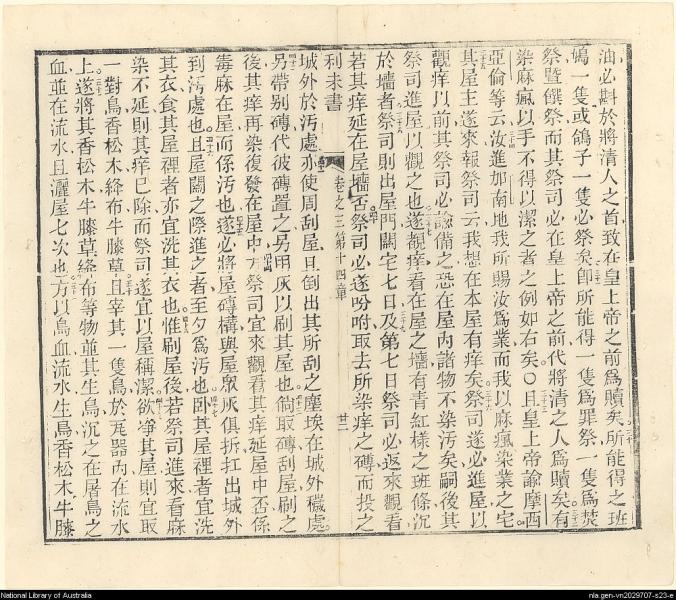 油必斟於將清人之首致在皇上帝之前爲贖矣所能得之班
鳩一隻或鴿子一隻必祭矣卽所能得一隻爲罪祭一隻爲焚
祭暨饌祭而其祭司必在皇上帝之前代將清之人爲贖矣有
染麻瘋以手不得以潔之者之例如右矣○且皇上帝諭摩西
亞倫等云汝進加南地我所賜汝爲業而我以麻瘋染業之宅
其屋主遂來報祭司云我想在本屋有痒矣祭司遂必進屋以
觀痒以前其祭司必諭備之恐在屋內諸物不染汚矣嗣後其
祭司進屋以觀之也遂覩痒看在屋之墻有青紅樣之班條沉
於墻者祭司則出屋門關宅七日及第七日祭司必返來觀看
若其痒延在屋墻否祭司必遂吩咐取去所染痒之磚而投之
利未書 卷之三第十四章 廿二
城外於汚處亦使周刮屋且倒出其所刮之塵埃在城外穢處
另帶別磚代彼磚置之另用灰以刷其屋也倘取磚刮屋刷之
後其痒再染復發在屋中方祭司宜來觀看其痒延屋中否係
毒麻在屋而係汚也遂必將屋磚構與屋眾灰俱拆扛出城外
到汚處也且屋關之際進之者至夕爲汚也卧其屋裡者宜洗
其衣食其屋裡者亦宜洗其衣也惟刷屋後若祭司進來看麻
染不延則其痒已除而祭司遂宜以屋稱潔欲凈其屋則宜取
一對鳥香松木絳布牛膝草且宰其一隻鳥於瓦器內在流水
上遂將其香松木牛膝草絳布等物並其生鳥沉之在屠鳥之
血並在流水且灑屋七次也方以鳥血流水生鳥香松木牛膝
National Library of Australia
nla.gen-vn2029707-s23-e